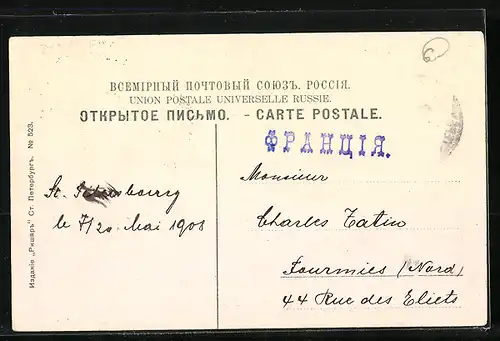 ВСЕМІРНЫЙ ПОЧТОВЫЙ СОЮЗЪ. РОССІЯ.
UNION POSTALE UNIVERSELLE RUSSIE.
ОТКРЫТОЕ ПИСЬМО. - CARTE POSTALE.
ФРАНЦІЯ.
6
Monsieur
Charles Tatin
Fourmies (Nord)
44 Rue des Eliets
St. Pétersbourg
le 7/20 Mai 1908
Изданіе „Ришаръ" Ст. Петербургъ. № 523.